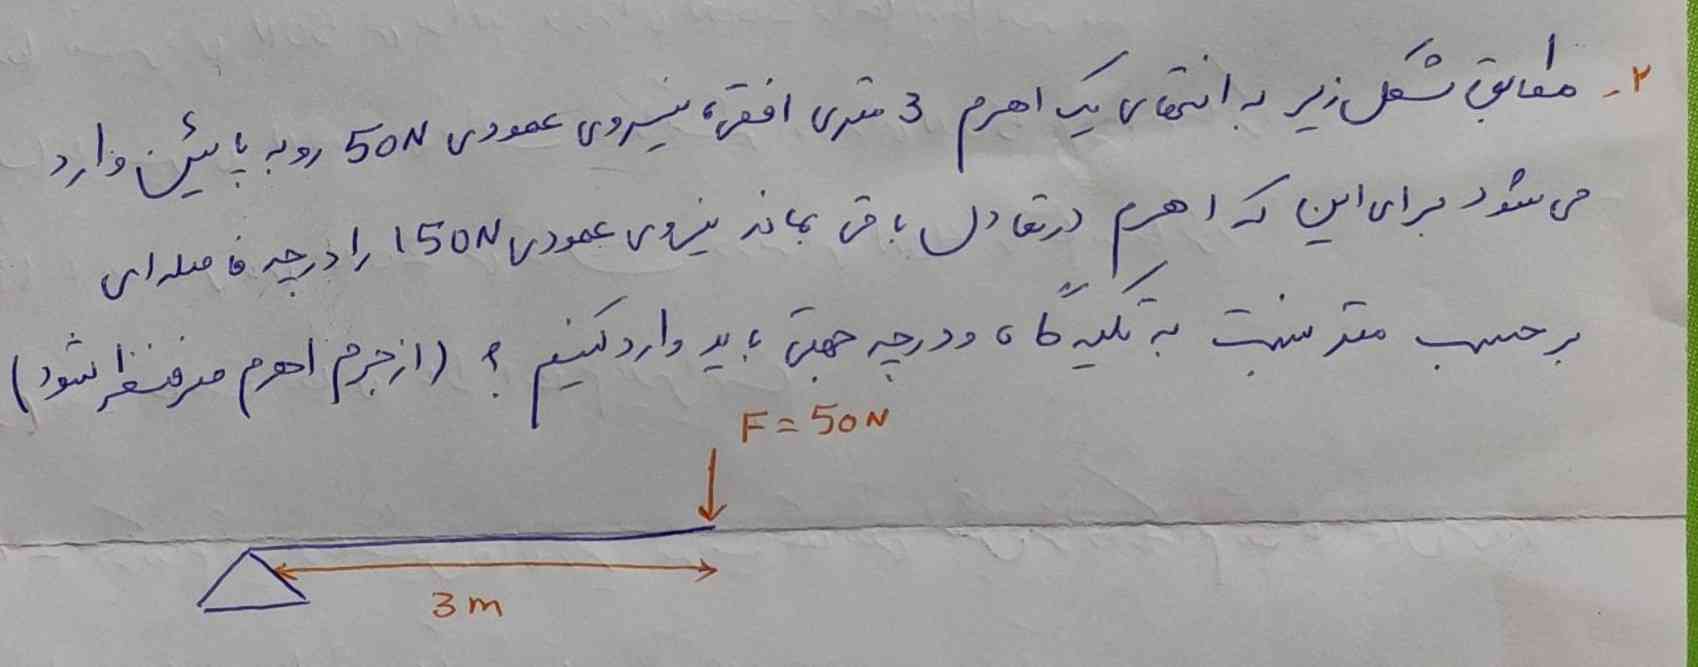 ۲- مطابق شکل زیر به انتهای یک اهرم 3 متری افقی، نیروی عمودی 50N رو به پائین وارد
می شود برای این که اهرم در تعادل باقی بماند نیروی عمودی 150N را در چه فاصله ای
بر حسب متر نسبت به تکیه گاه و در چه جهتی باید وارد کنیم ؟ (از جرم اهرم صرفنظر شود)
F = 50N
3m